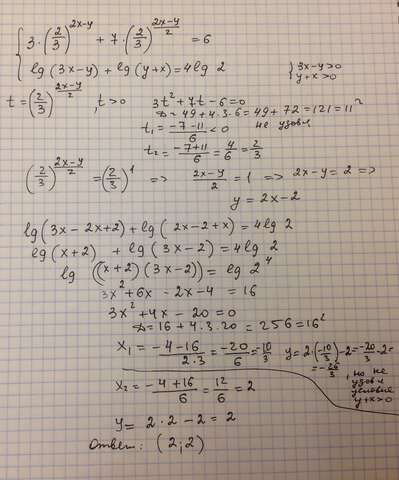 { 3·(2/3)^(2x-y) + 7·(2/3)^((2x-y)/2) = 6
lg(3x-y) + lg(y+x) = 4lg2 { 3x-y>0
y+x>0
t = (2/3)^((2x-y)/2), t>0 3t²+7t-6=0
D = 49+4·3·6 = 49+72 = 121 = 11²
t₁ = (-7-11)/6 < 0 не удовл
t₂ = (-7+11)/6 = 4/6 = 2/3
(2/3)^((2x-y)/2) = (2/3)^1 => (2x-y)/2 = 1 => 2x-y=2 =>
y = 2x-2
lg(3x-2x+2) + lg(2x-2+x) = 4lg2
lg(x+2) + lg(3x-2) = 4lg2
lg((x+2)(3x-2)) = lg2⁴
3x²+6x-2x-4 = 16
3x²+4x-20 = 0
D = 16+4·3·20 = 256 = 16²
x₁ = (-4-16)/(2·3) = -20/6 = -10/3 y = 2·(-10/3)-2 = -20/3-2 =
= -26/3, но не
удовл
условие
y+x>0
x₂ = (-4+16)/6 = 12/6 = 2
y = 2·2-2 = 2
Ответ: (2;2)